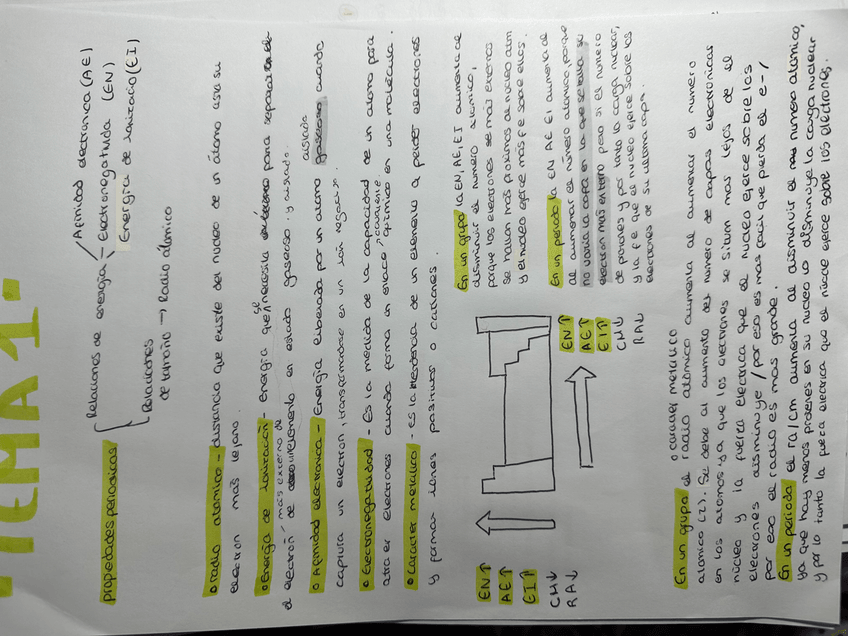 TEMA 1.
propiedades periodicas
Relaciones de energía
Afinidad electronica (AE)
Electronegatividad (EN)
Energía de Ionización (EI)
Relaciones
de tamaño → Radio atomico
• radio atomico - distancia que existe del nucleo de un átomo asta su
electron mas lejano.
• Energia de Ionización - Energia que se necesita para separar
el electrón más externo de elemento en estado gaseoso y aislado.
• Afinidad electronica - Energía liberada por un atomo gaseoso aislado cuando
captura un electron, transformandose en un ion negativo.
• Electronegatividad - Es la medida de la capacidad de un atomo para
atraer electrones cuando forma un enlace químico covalente en una molecula.
• Caracter metalico - es la tendencia de un elemento a perder electrones
y formar iones positivos o cationes.
EN↑
AE↑
EI↑
CM↓
RA↓
EN↑
AE↑
EI↑
CM↓
RA↓
En un grupo la EN, AE, EI aumenta al
disminuir el numero atomico,
porque los electrones se mas externos
se hallan mas proximos al nucleo atm
y el nucleo ejerce más fe sobre ellos.
En un periodo la EN AE EI aumenta al
al aumentar el número atomico, porque
no varia la capa en la que se halla su
electron mas externo pero si el numero
de protones y por tanto la carga nuclear,
y la fe que el nucleo ejerce sobre los
electrones de su ultima capa.
o caracter metalico
En un grupo el radio atomico aumenta al aumentar el numero
atomico (Z). Se debe al aumento del numero de capas electronicas
en los atomos ya que los electrones se situan mas lejos de el
núcleo y la fuerza electrica que el nucleo ejerce sobre los
electrones disminuye / por eso es mas facil que pierda el e- /
por eso el radio es mas grande.
En un periodo el ra/cm aumenta al disminuir el numero atomico,
ya que hay menos protones en su nucleo lo disminuye la carga nuclear
y por lo tanto la fuerza electrica que el núcleo ejerce sobre los electrones.